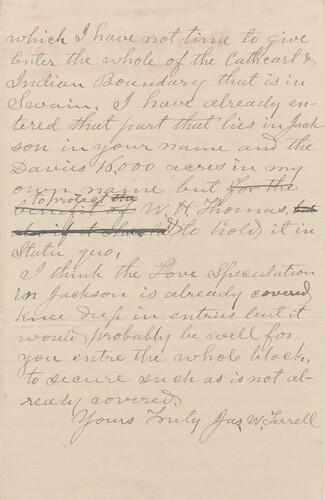 which I have not time to give
Enter the whole of the Cathcart &
Indian Boundary that is in
Swain. I have already en-
tered that part that lies in Jack
son in your name and the
Davies 16000 acres in my
own name but for the
to protect the
benefit of W. H. Thomas,
to hold it in
Statu quo,
I think the Love Speculation
in Jackson is already covered
knee deep in entries but it
would probably be well for
you entre the whole block,
to secure such as is not al-
ready covered.
Yours Truly Jas. W. Terrell